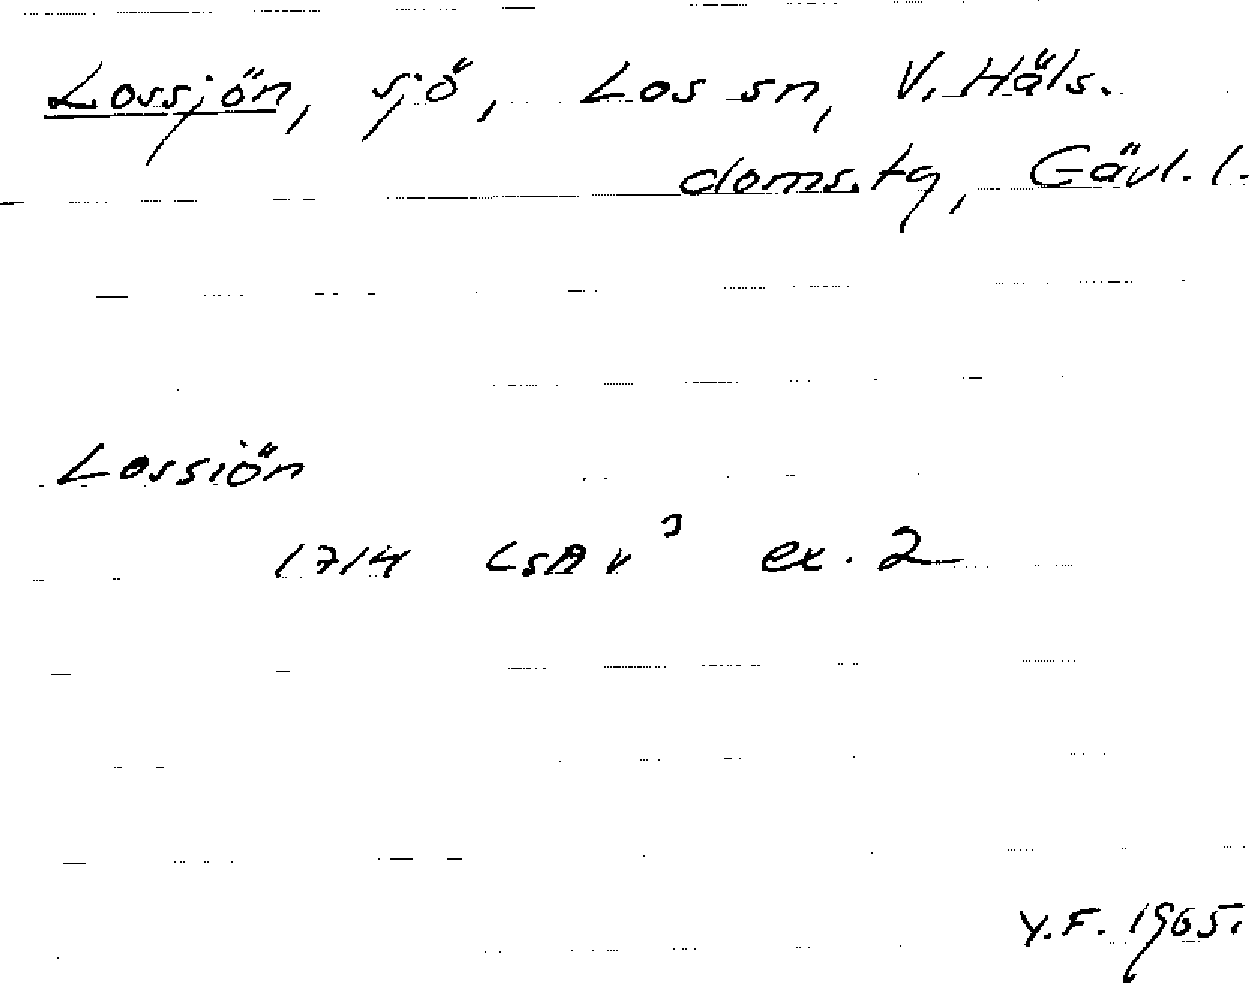 Lossjön, sjö, Los sn, V. Häls.
doms.tg, Gävl. l.
Lossiön
1714 LSA v³ ex. 2
Y.F. 1965.